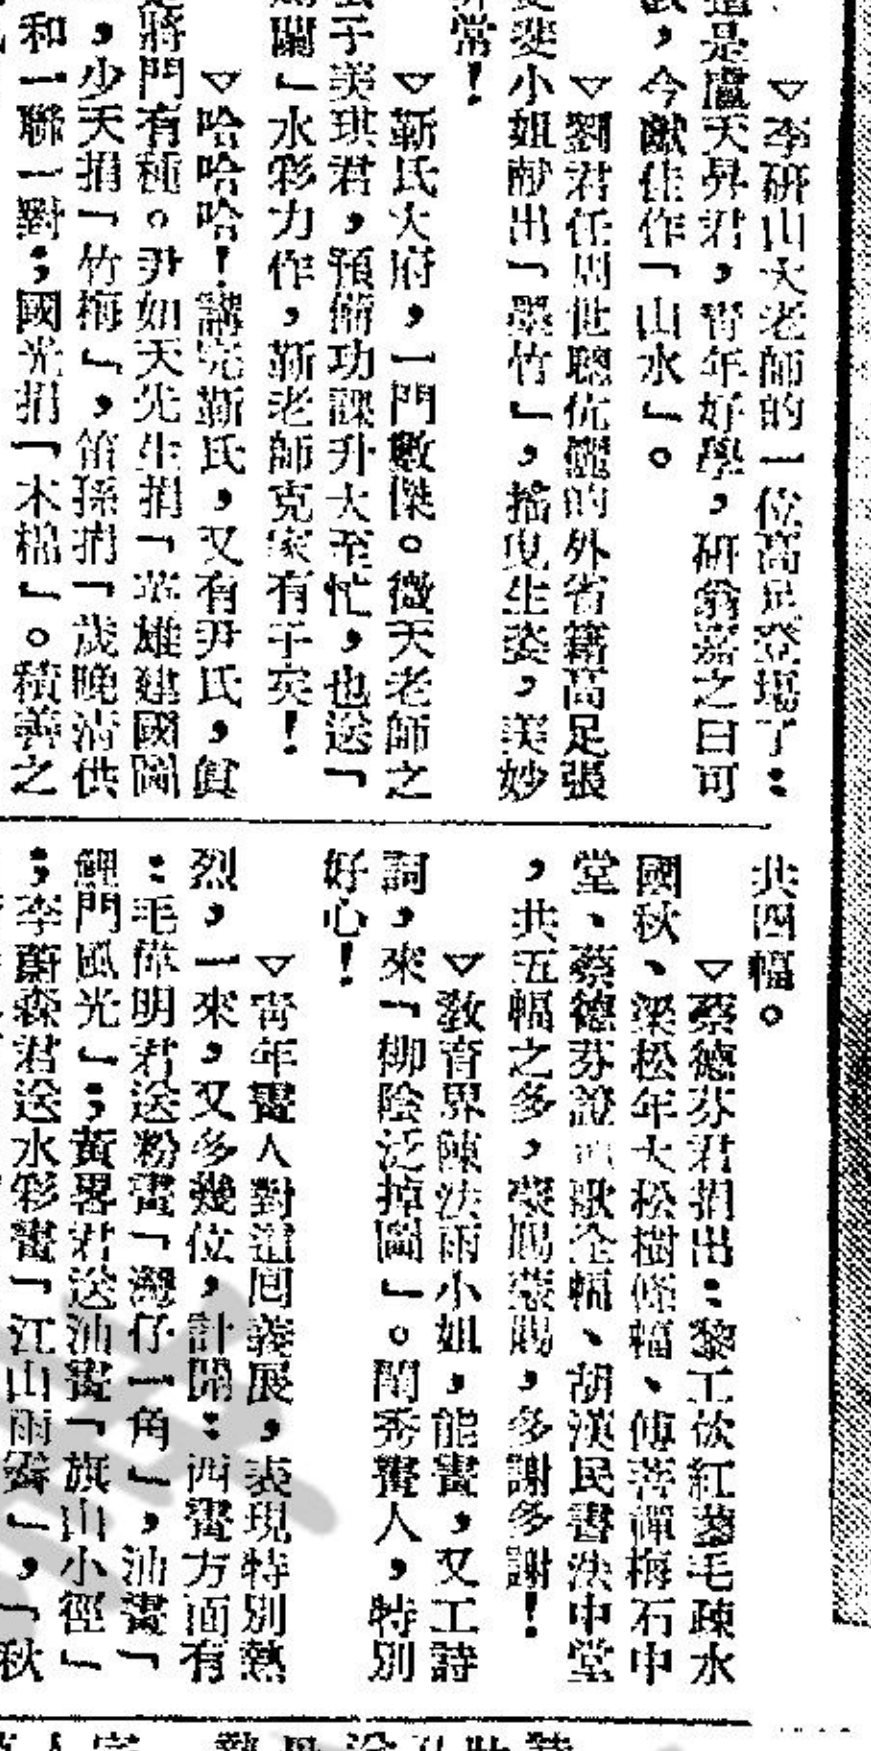 ▽李研山大老師的一位高足登場了：
這是盧天昇君，青年好學，研翁嘉之曰可
，今獻佳作「山水」。
▽劉君任周世聰伉儷的外省籍高足張
斐小姐献出「墨竹」，搖曳生姿，美妙
非常！
▽靳氏大府，一門數傑。微天老師之
子美琪君，預備功課升大至忙，也送「
蘭」水彩力作，靳老師克家有子矣！
▽哈哈哈！講完靳氏，又有尹氏，眞
將門有種。尹如天先生捐「英雄建國圖
，少天捐「竹梅」，笛孫捐「歲晚淸供
和一聯一對；國光捐「木棉」。積善之
共四幅。
▽蔡德芬君捐出：黎工佽紅蓼毛疎水
國秋、梁松年大松樹條幅、傅菩禪梅石中
堂、蔡德芬證歌全幅、胡漢民書法中堂
，共五幅之多，蔡賜蔡賜，多謝多謝！
▽敎育界陳法雨小姐，能畫，又工詩
詞，來「柳陰泛掉圖」。閨秀畫人，特別
好心！
▽靑年畫人對這囘義展，表現特別熱
烈，一來，又多幾位，計開：西畫方面有
：毛偉明君送粉畫「灣仔一角」，油畫「
鯉門風光」；黃畧君送油畫「旗山小徑」
；李蔚森君送水彩畫「江山雨霽」，「秋